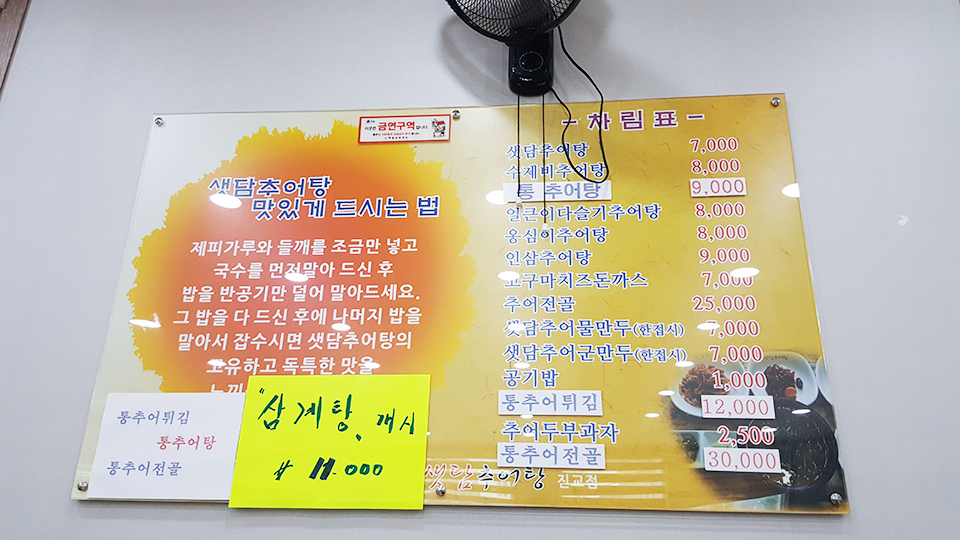 금연구역
샛담추어탕
맛있게 드시는 법
제피가루와 들깨를 조금만 넣고
국수를 먼저말아 드신 후
밥을 반공기만 덜어 말아드세요.
그 밥을 다 드신 후에 나머지 밥을
말아서 잡수시면 샛담추어탕의
고유하고 독특한 맛을
통추어튀김
통추어탕
통추어전골
"삼계탕, 개시
₩ 11.000
- 차림표 -
샛담추어탕 7,000
수제비추어탕 8,000
통 추어탕 9,000
얼큰이다슬기추어탕 8,000
옹심이추어탕 8,000
인삼추어탕 9,000
고구마치즈돈까스 7,000
추어전골 25,000
샛담추어물만두(한접시) 7,000
샛담추어군만두(한접시) 7,000
공기밥 1,000
통추어튀김 12,000
추어두부과자 2,500
통추어전골 30,000
샛담추어탕 진교점